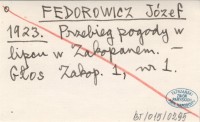 FEDOROWICZ Józef
1923. Przebieg pogody w
lipcu w Zakopanem. –
Głos Zakop. 1, nr 1.